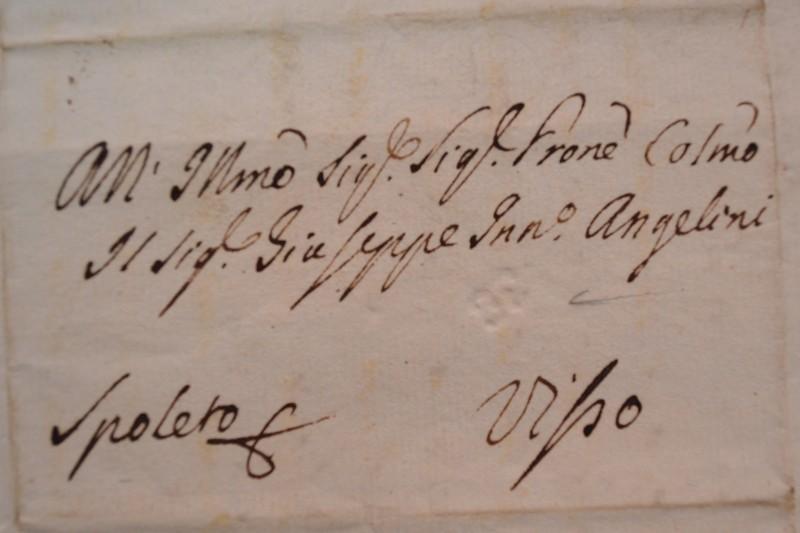 All' Illmõ Sigr. Sigr. Pronẽ Colmõ
Il Sigr. Giuseppe Inno. Angelini
Spoleto
Visso